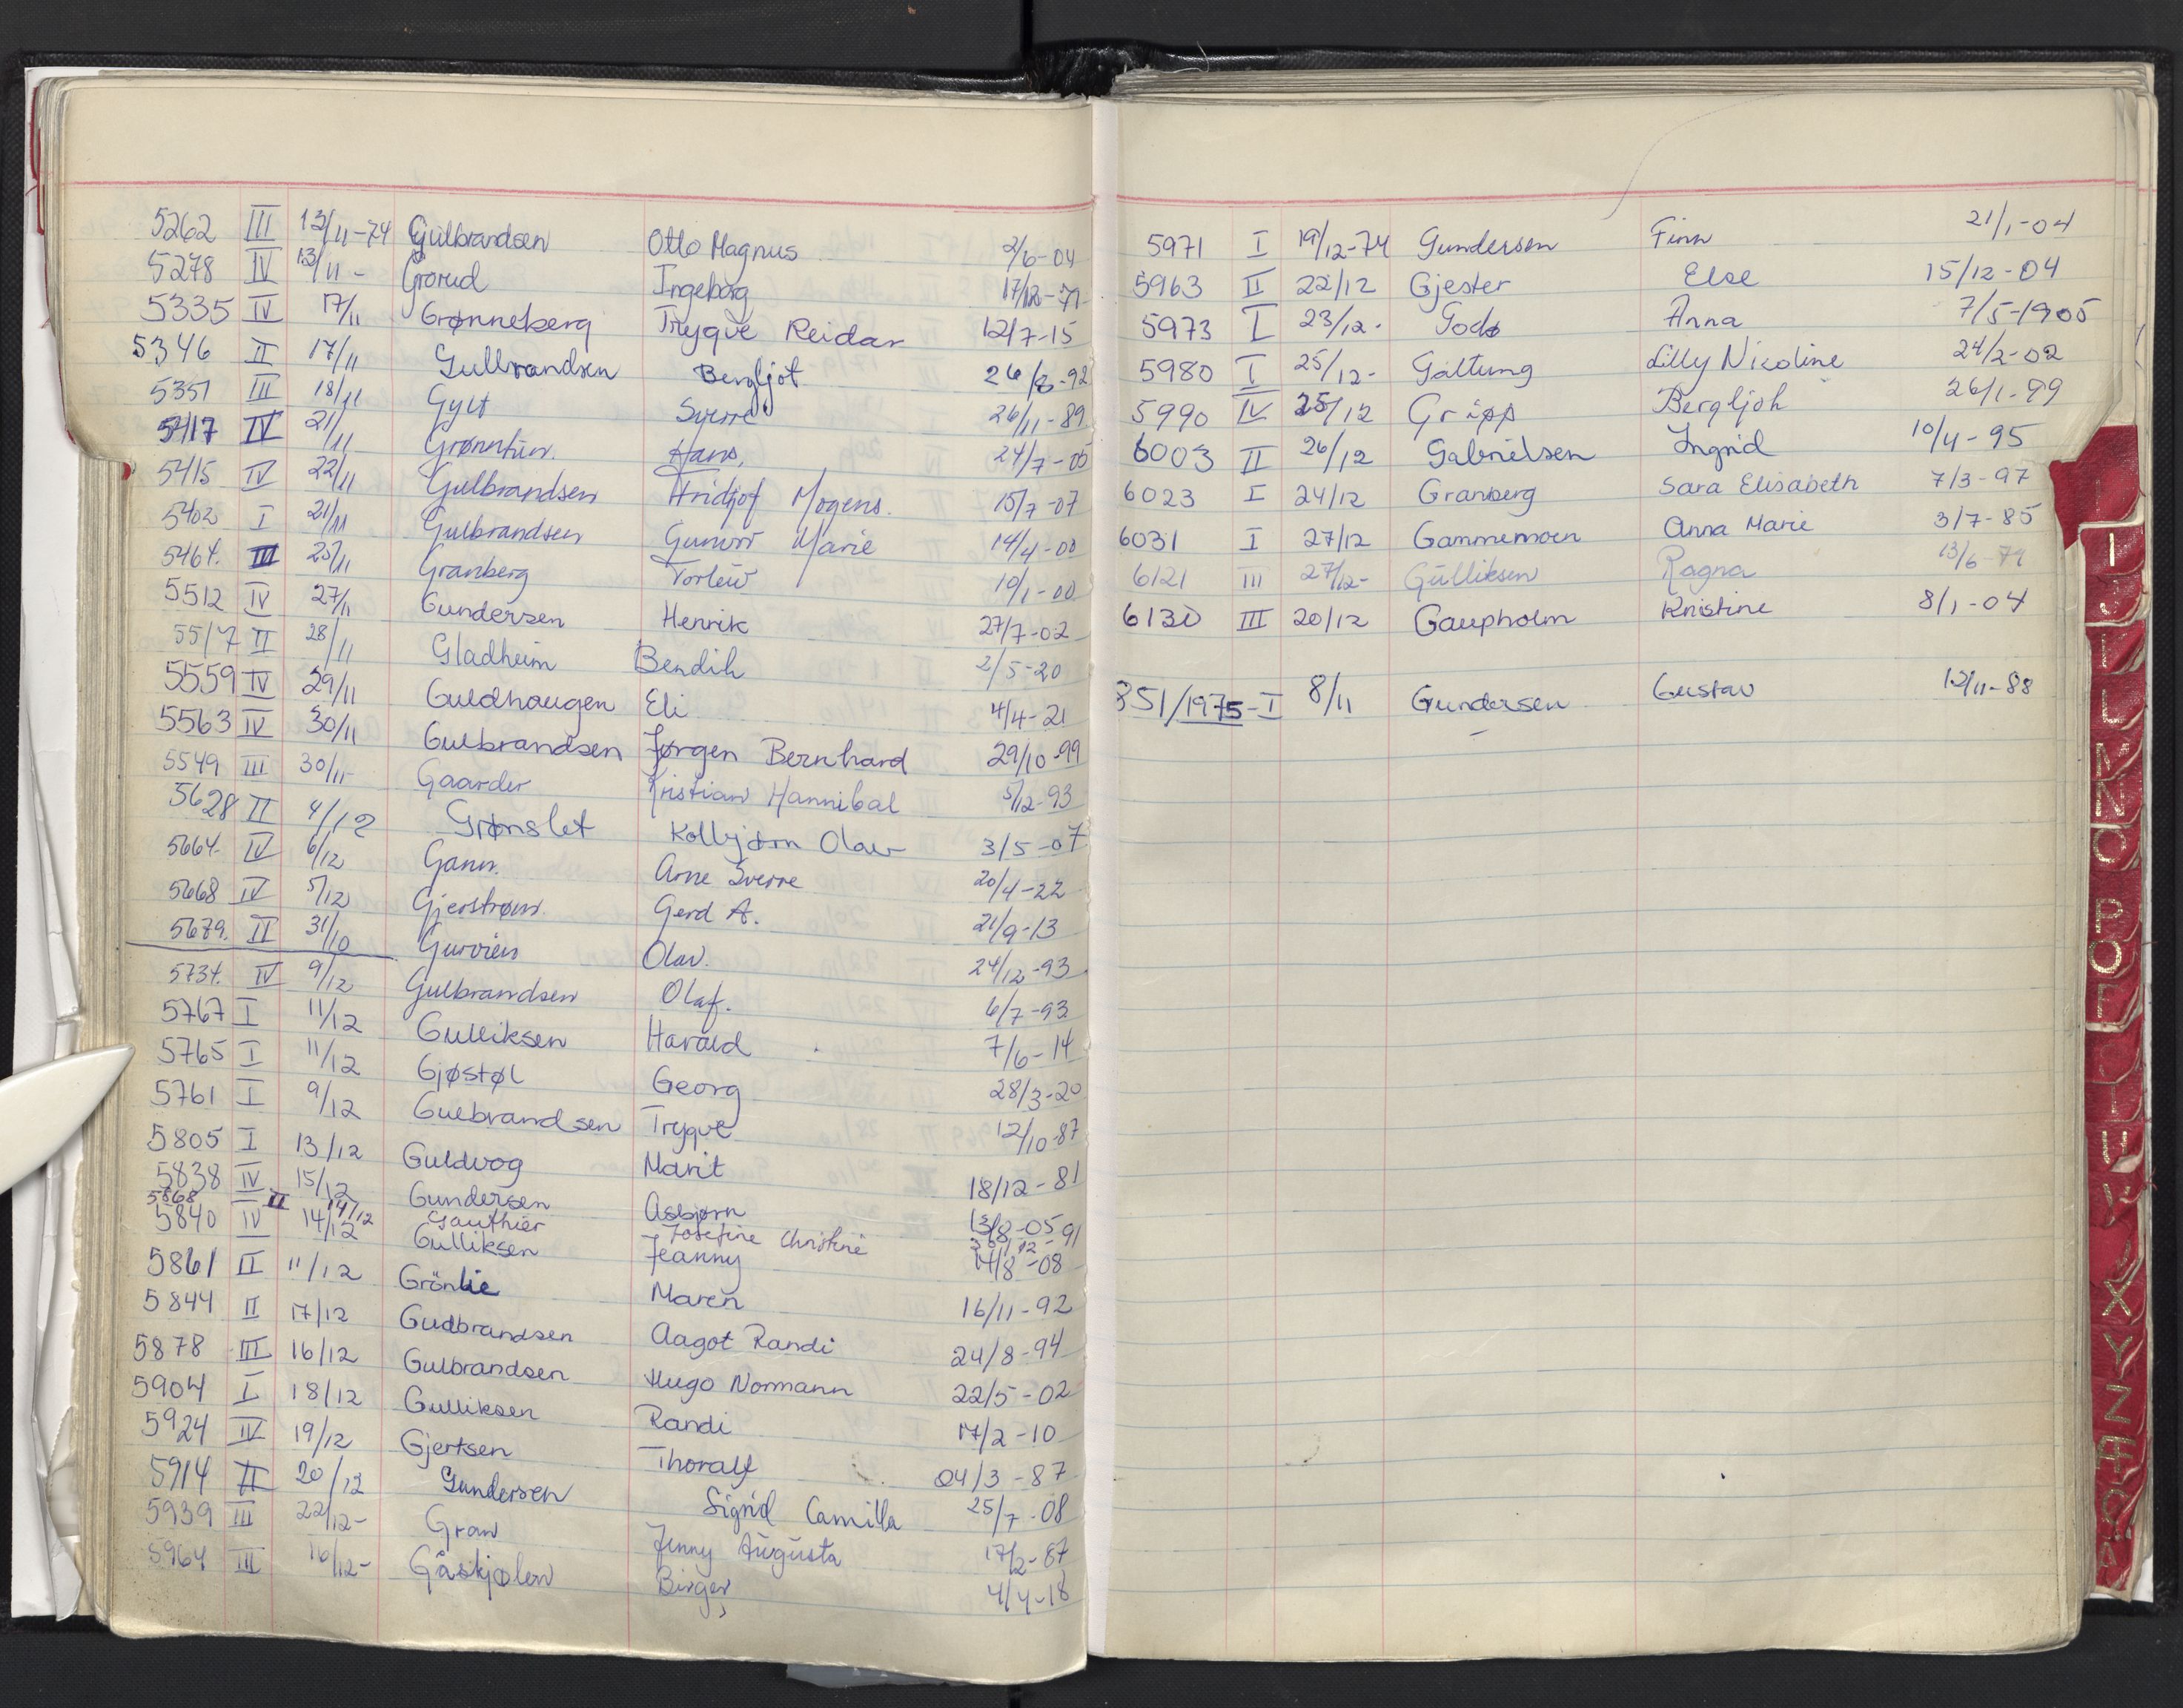 5262 III 13/11-74 Gulbrandsen Otto Magnus 2/6-04
5278 IV 13/11- Grorud Ingeborg 17/12-71
5335 IV 17/11 Grønneberg Trygve Reidar 12/7-15
5346 II 17/11 Gulbrandsen Bergljot 26/8-92
5351 III 18/11 Gylt Sverre 26/11-89
5417 IV 21/11 Grønntun. Hans. 24/7-05
5415 IV 22/11 Gulbrandsen Fridtjof Mogens. 15/7-07
5402 I 21/11 Gulbrandsen Gunvor Marie 14/4-00
5464. III 25/11 Granberg Torleiv 10/1-00
5512 IV 27/11 Gundersen Henrik 27/7-02
5517 II 28/11 Gladheim Bendik 2/5-20
5559 IV 29/11 Guldhaugen Eli 4/4-21
5563 IV 30/11 Gulbrandsen Jørgen Bernhard 29/10-99
5549 III 30/11- Gaarder Kristian Hannibal 5/12-93
5628 II 4/12 Grønslet Kolbjørn Olav 3/5-07
5664. IV 6/12 Gann. Arne Sverre 20/4-22
5668 IV 5/12 Gjerstrøm Gerd A. 21/9-13
5679. II 31/10 Olav. 24/12-93
5734. IV 9/12 Gulbrandsen Olaf. 6/7-93
5767 I 11/12 Gulliksen Harald 7/6-14
5765 I 11/12 Gjøstøl Georg 28/3-20
5761 I 9/12 Gulbrandsen Trygve 12/10-87
5805 I 13/12 Guldvog Marit 18/12-81
5838 IV 15/12 Gundersen Asbjørn 13/8-05
5868 II 14/12 Gauthier Josefine Christine 30/12-91
5840 IV 14/12 Gulliksen Jeanny 14/8-08
5861 II 11/12 Grönlie Maren 16/11-92
5844 II 17/12 Gudbrandsen Aagot Randi 24/8-94
5878 III 16/12 Gulbrandsen Hugo Normann 22/5-02
5904 I 18/12 Gulliksen Randi 17/2-10
5924 IV 19/12 Gjertsen Thoralf 04/3-87
5914 II 20/12 Gundersen Sigrid Camilla 25/7-08
5939 III 22/12- Gran Jenny Augusta 17/2-87
5964 III 16/12- Gåskjølen Birger 4/4-18
5971 I 19/12-74 Gundersen Finn 21/1-04
5963 II 22/12 Gjester Else 15/12-04
5973 I 23/12. Godø Anna 7/5-1905
5980 I 25/12- Galtung Lilly Nicoline 24/2-02
5990 IV 25/12 Gripp Bergljot 26/1-99
6003 II 26/12 Gabrielsen Ingrid 10/4-95
6023 I 24/12 Granberg Sara Elisabeth 7/3-97
6031 I 27/12 Gammemoen Anna Marie 3/7-85
6121 III 27/12- Gulliksen Ragna 13/6-79
6130 III 20/12 Gaupholm Kristine 8/1-04
351/1975-I 8/11 Gundersen Gustav 12/11-88
I
J
L
N
O
P
Y
X
Y
Z